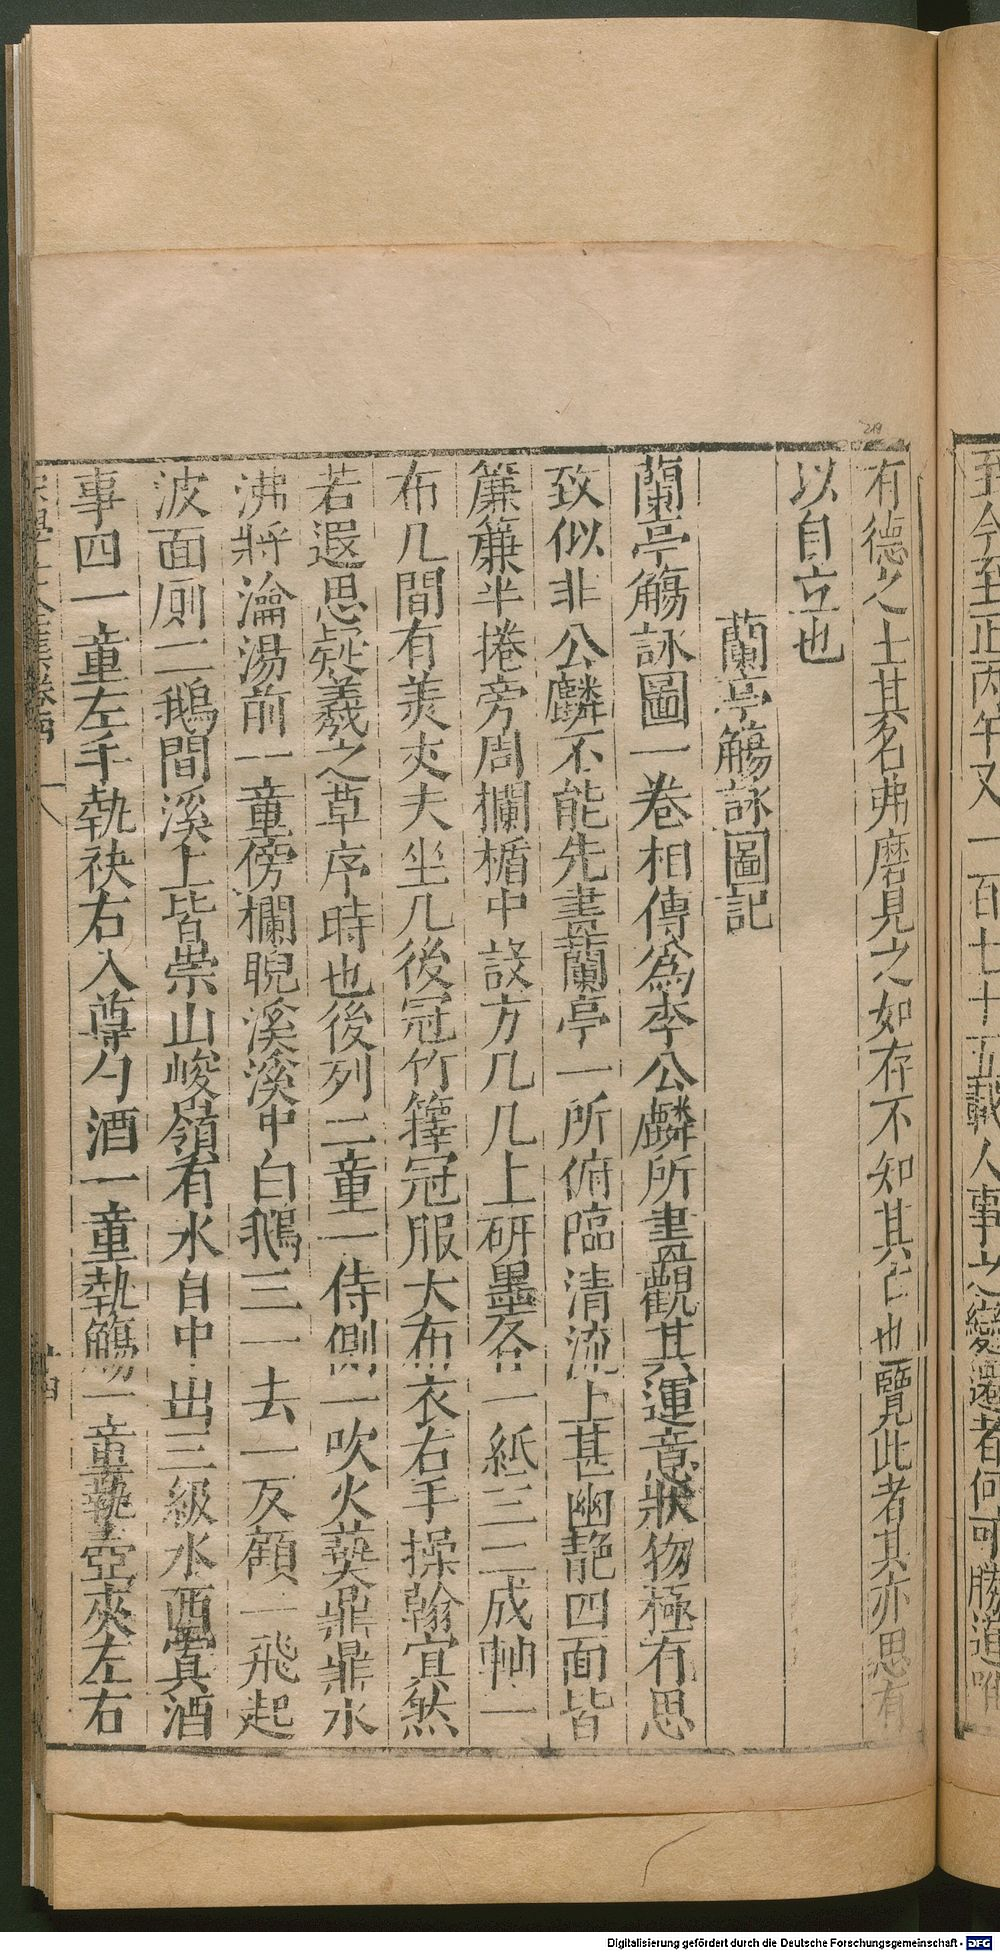 至今至正丙午又一百七十五載人事之變遷者何可勝道唯
有德之士其名弗磨見之如存不知其亡也覽此者其亦思有
以自立也
蘭亭觴詠圖記
蘭亭觴詠圖一卷相傳為李公麟所畫觀其運意狀物極有思
致似非公麟不能先畫蘭亭一所俯臨清流上甚幽靘四面皆
簾簾半捲旁周欄楯中設方几几上研墨各一紙三二成軸一
布几間有美丈夫坐几後冠竹籜冠服大布衣右手操翰宜然
若遐思疑羲之草序時也後列二童一侍側一吹火𤍠鼎鼎水
沸將瀹湯前一童傍欄睨溪溪中白鵝三一去一反顧一飛起
波面厠二鵝間溪上皆崇山峻嶺有水自中出三級水西寘酒
事四一童左手執袂右入尊勺酒一童執觴一童執壺夾左右
宋學士全集卷四
十四
219
Digitalisierung gefördert durch die Deutsche Forschungsgemeinschaft - DFG